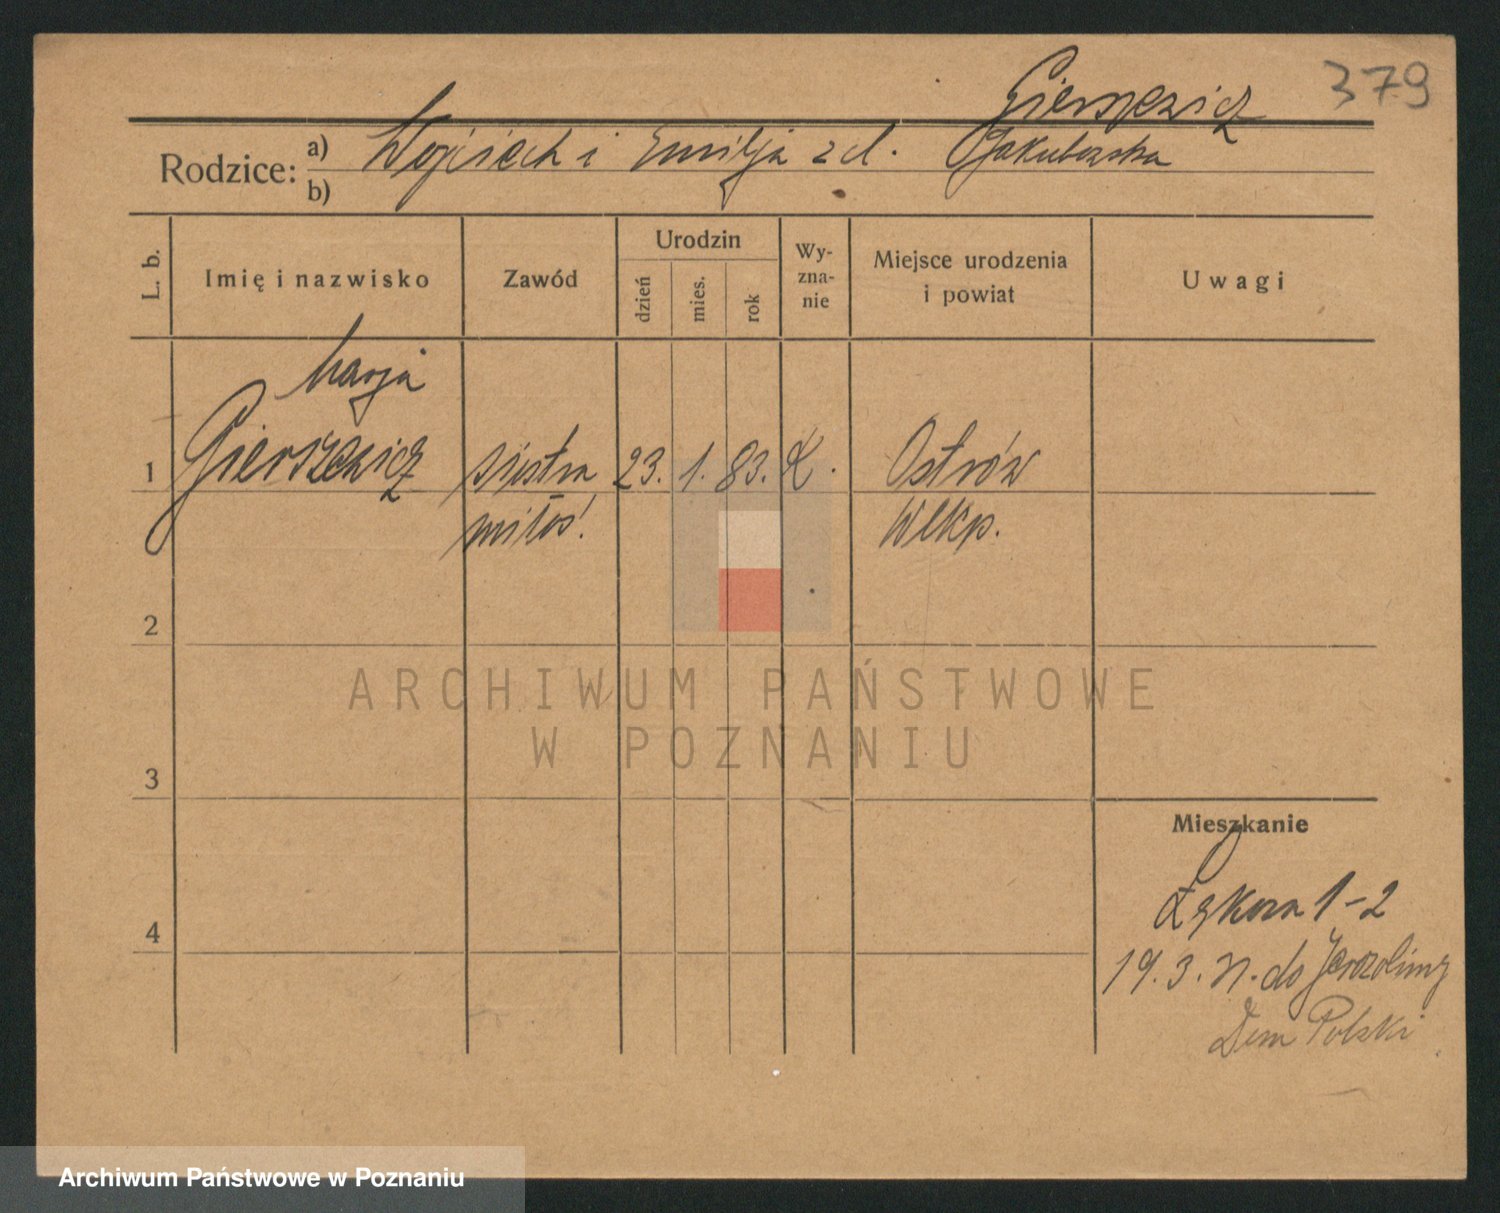 379
Gierszewicz
Rodzice: a) Wojciech i Emilja z d. Jakubowska
b)
L. b. Imię i nazwisko Zawód Urodzin dzień mies. rok Wy-zna-nie Miejsce urodzenia i powiat Uwagi
Marja
1 Gierszewicz siostra 23. 1. 83. K. Ostrów
miłos! Wlkp.
2
ARCHIWUM PAŃSTWOWE
W POZNANIU
3
Mieszkanie
Łąkowa 1-2
4
19.3. do Jerozolimy
Dom Polski
Archiwum Państwowe w Poznaniu